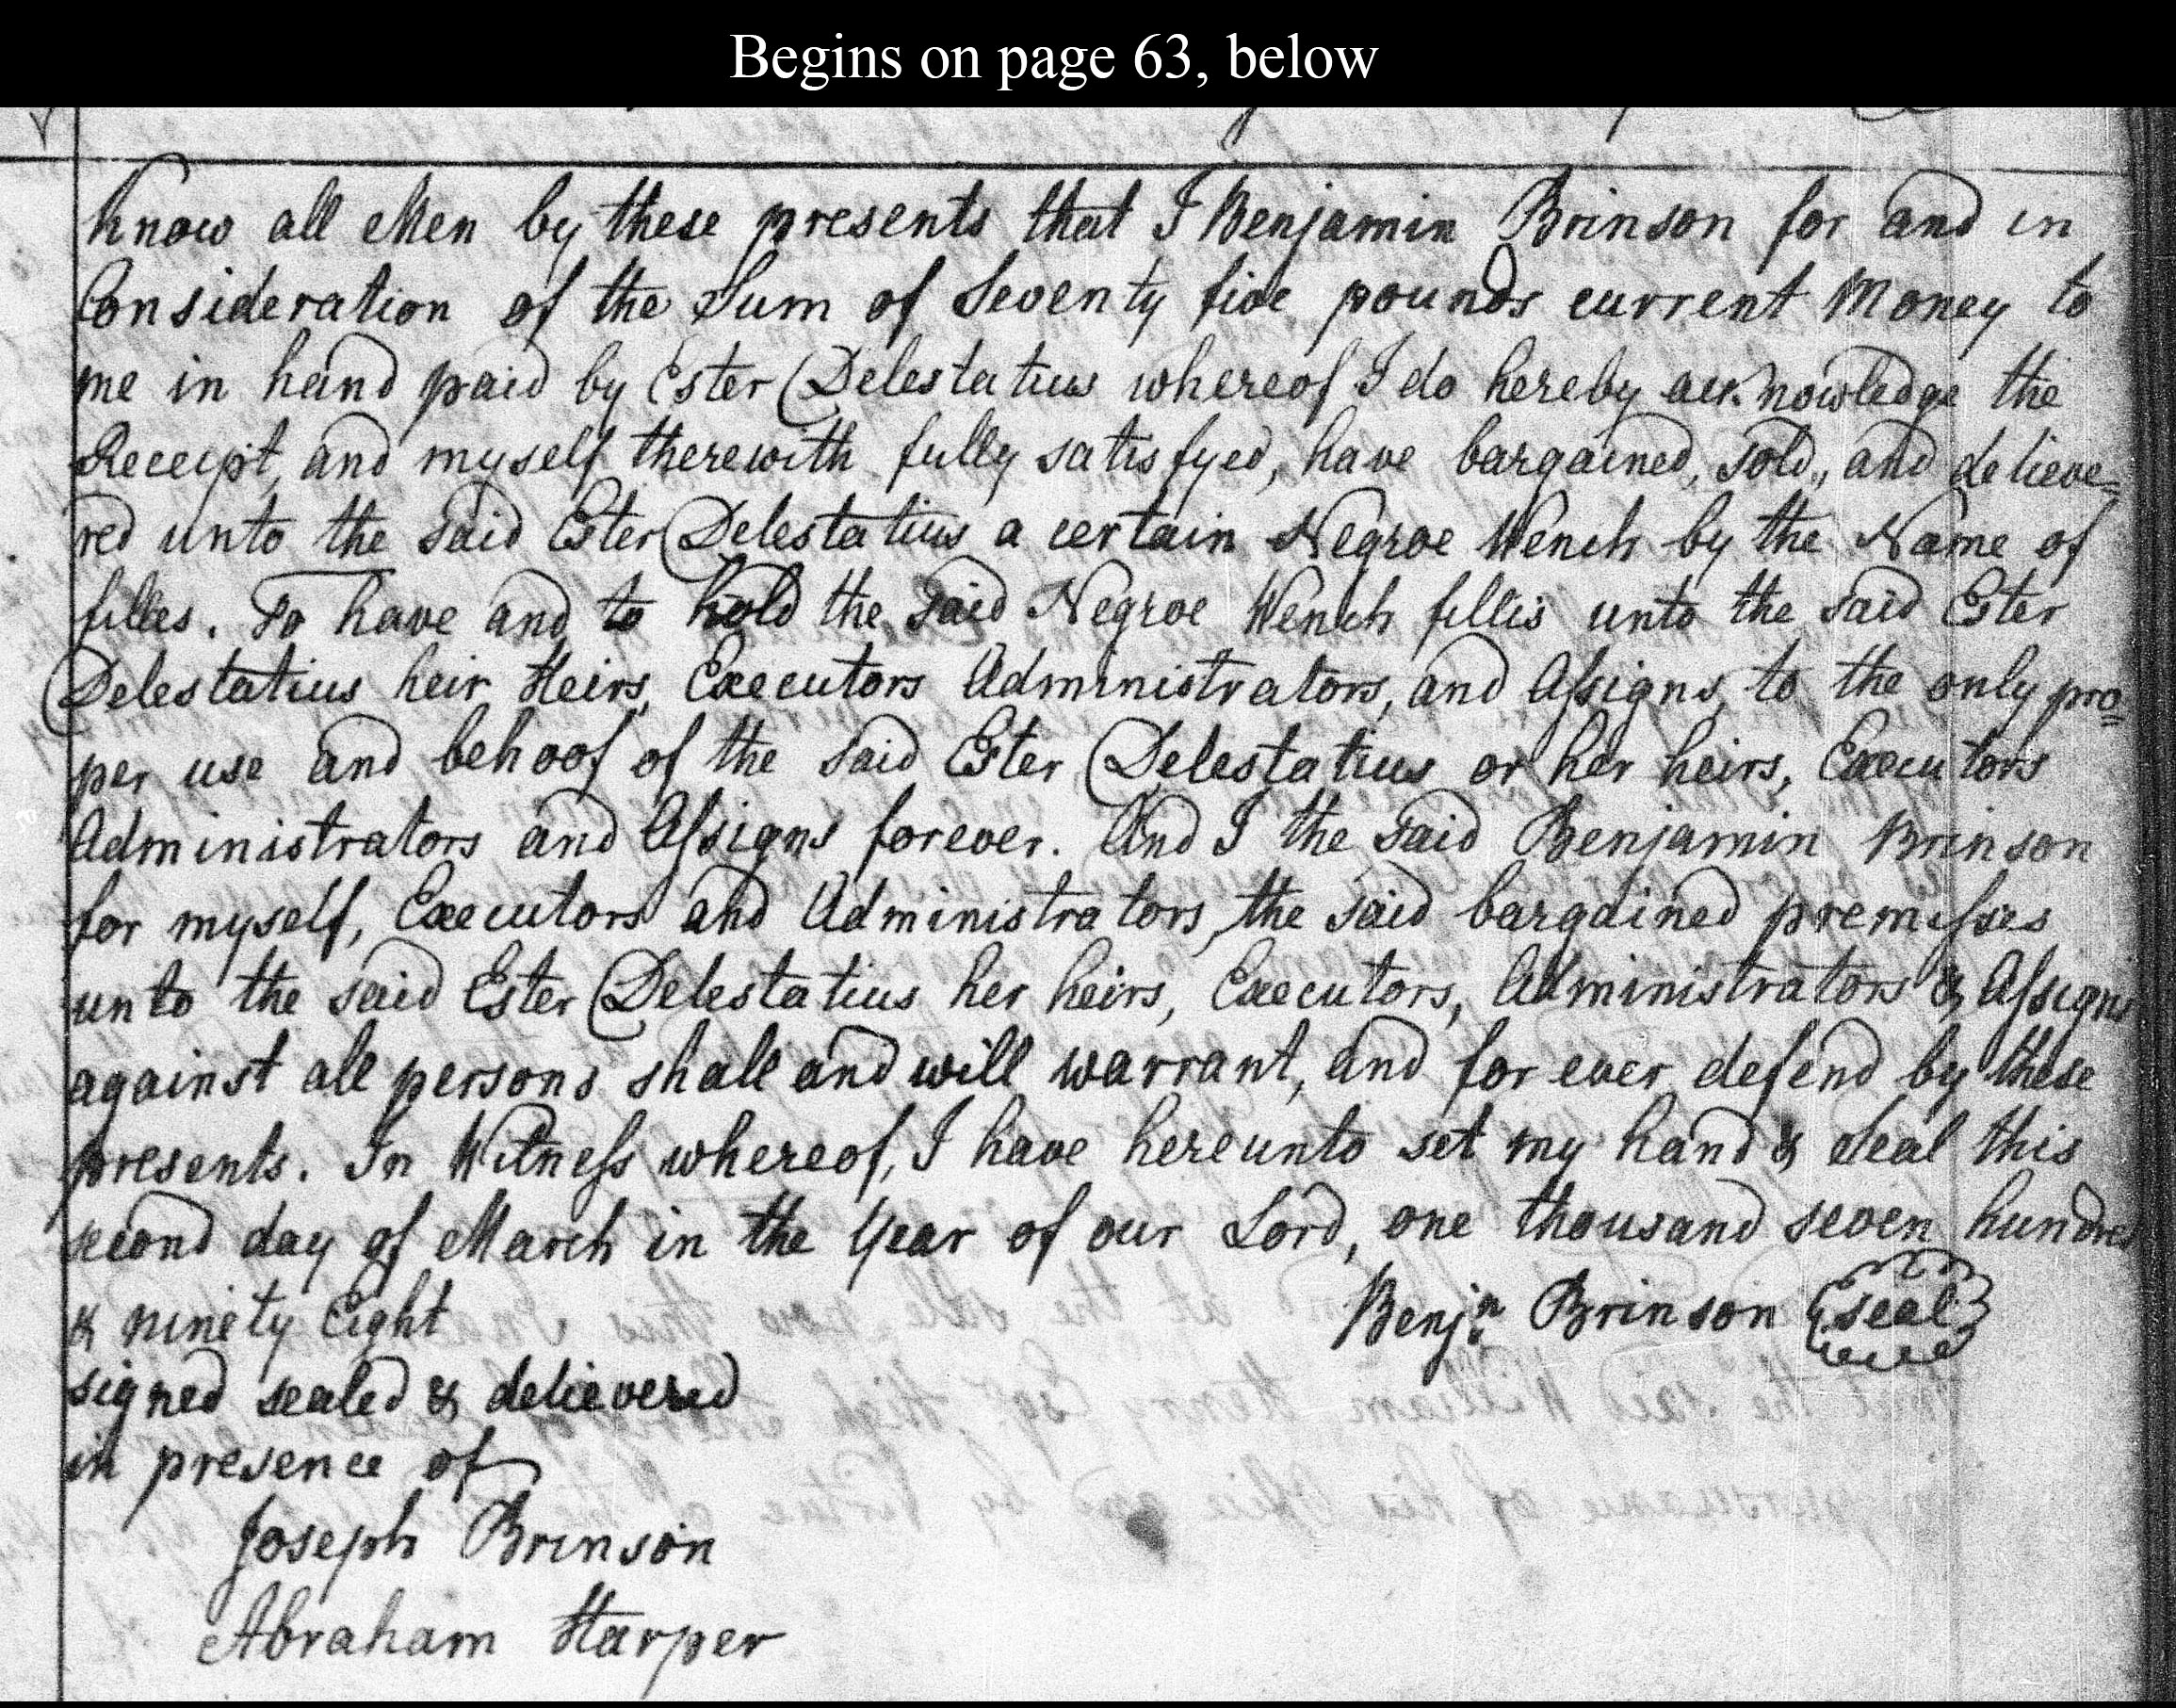 Begins on page 63, below
Know all Men by these presents that I Benjamin Brinson for and in
Consideration of the Sum of Seventy five pounds current Money to
me in hand paid by Ester Delestatius whereof I do hereby acknowledge the
Receipt, and myself therewith fully satisfyed, have bargained, Sold, and delieve=
red unto the said Ester Delestatius a certain Negroe Wench by the Name of
filles. To have and to hold the said Negroe Wench fillis unto the said Ester
Delestatius heir Heirs, Executors Administrators, and Assigns, to the only pro=
per use and behoof of the said Ester Delestatius or her heirs, Executors
Administrators and Assigns forever. And I the said Benjamin Brinson
for myself, Executors and Administrators, the said bargained premisses
unto the said Ester Delestatius her heirs, Executors, Administrators & Assigns
against all persons shall and will warrant, and for ever defend by these
presents. In Witness whereof, I have hereunto set my hand & Seal this
second day of March in the Year of our Lord, one thousand seven hundred
& ninety Eight Benjn Brinson seal
signed sealed & delievered
in presence of
Joseph Brinson
Abraham Harper